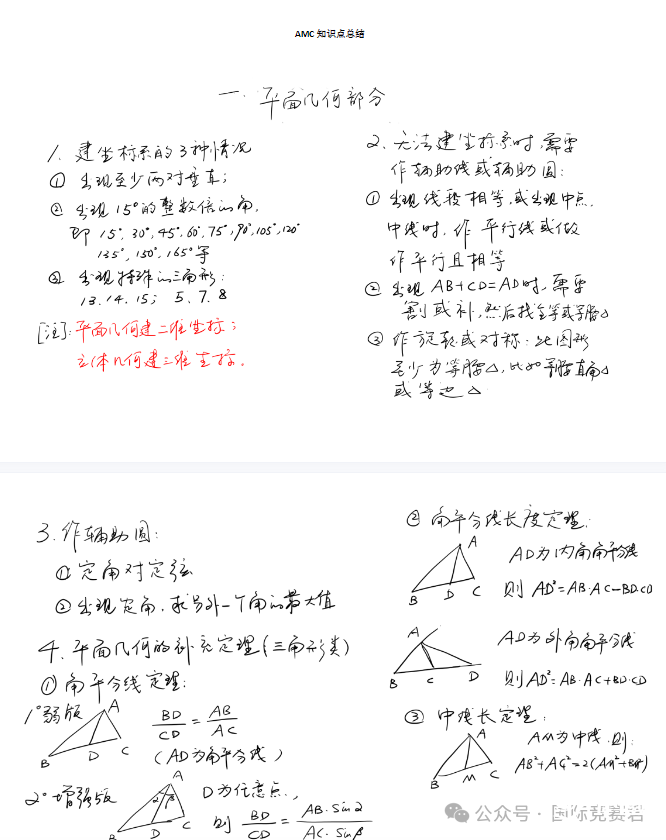 AMC 知识点总结
一. 平面几何部分
1. 建坐标系的3种情况
① 出现至少两对垂直;
② 出现15°的整数倍的角,
即 15°, 30°, 45°, 60°, 75°, 90°, 105°, 120°
135°, 150°, 165° 等
③ 出现特殊的三角形:
13. 14. 15; 5. 7. 8
[注]: 平面几何建二维坐标;
立体几何建三维坐标.
2. 无法建坐标系时,需要
作辅助线或辅助圆:
① 出现线段相等,或出现中点,
中线时, 作 平行线或做
作平行且相等
② 出现 AB+CD=AD时, 需要
割或补, 然后找全等或等腰△
③ 作旋转或对称: 此图形
至少为等腰△, 比如等腰直角△
或等边△
3. 作辅助圆:
① 定角对定弦
② 出现定角, 求另外一个角的最大值
4. 平面几何的补充定理(三角形类)
① 角平分线定理:
1° 弱版
A
B
D
C
BD/CD = AB/AC
(AD为角平分线)
2° 增强版
A
α β
B
D
C
D为任意点,
则 BD/CD = AB·sinα/AC·sinβ
② 角平分线长度定理:
A
B
D
C
AD为内角角平分线
则 AD²=AB·AC-BD·CD
A
B
C
D
AD为外角角平分线
则 AD²=AB·AC+BD·CD
③ 中线长定理:
A
B
M
C
AM为中线, 则:
AB²+AC²=2(AM²+BM²)
公众号 · 国际竞赛君